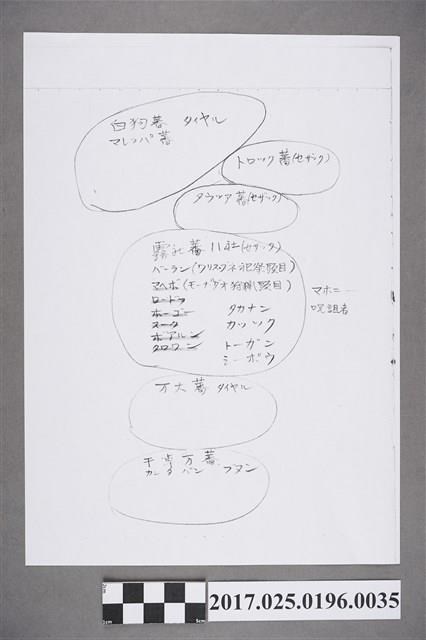 白狗蕃 タイヤル
マレッパ蕃
トロック蕃(セデック)
タウツア蕃(セデック)
霧社蕃 11社(セデック)
パーラン(ワリスブネ祀祭頭目)
マヘボ(モーナダオ狩猟頭目)
ロードフ
ホーゴー
スーク
ボアルン
タロワン
タカナン
カッツク
トーガン
シーボウ
マホニー
呪詛者
万大蕃 タイヤル
干卓万蕃
カンタバン ブヌン
2017.025.0196.0035